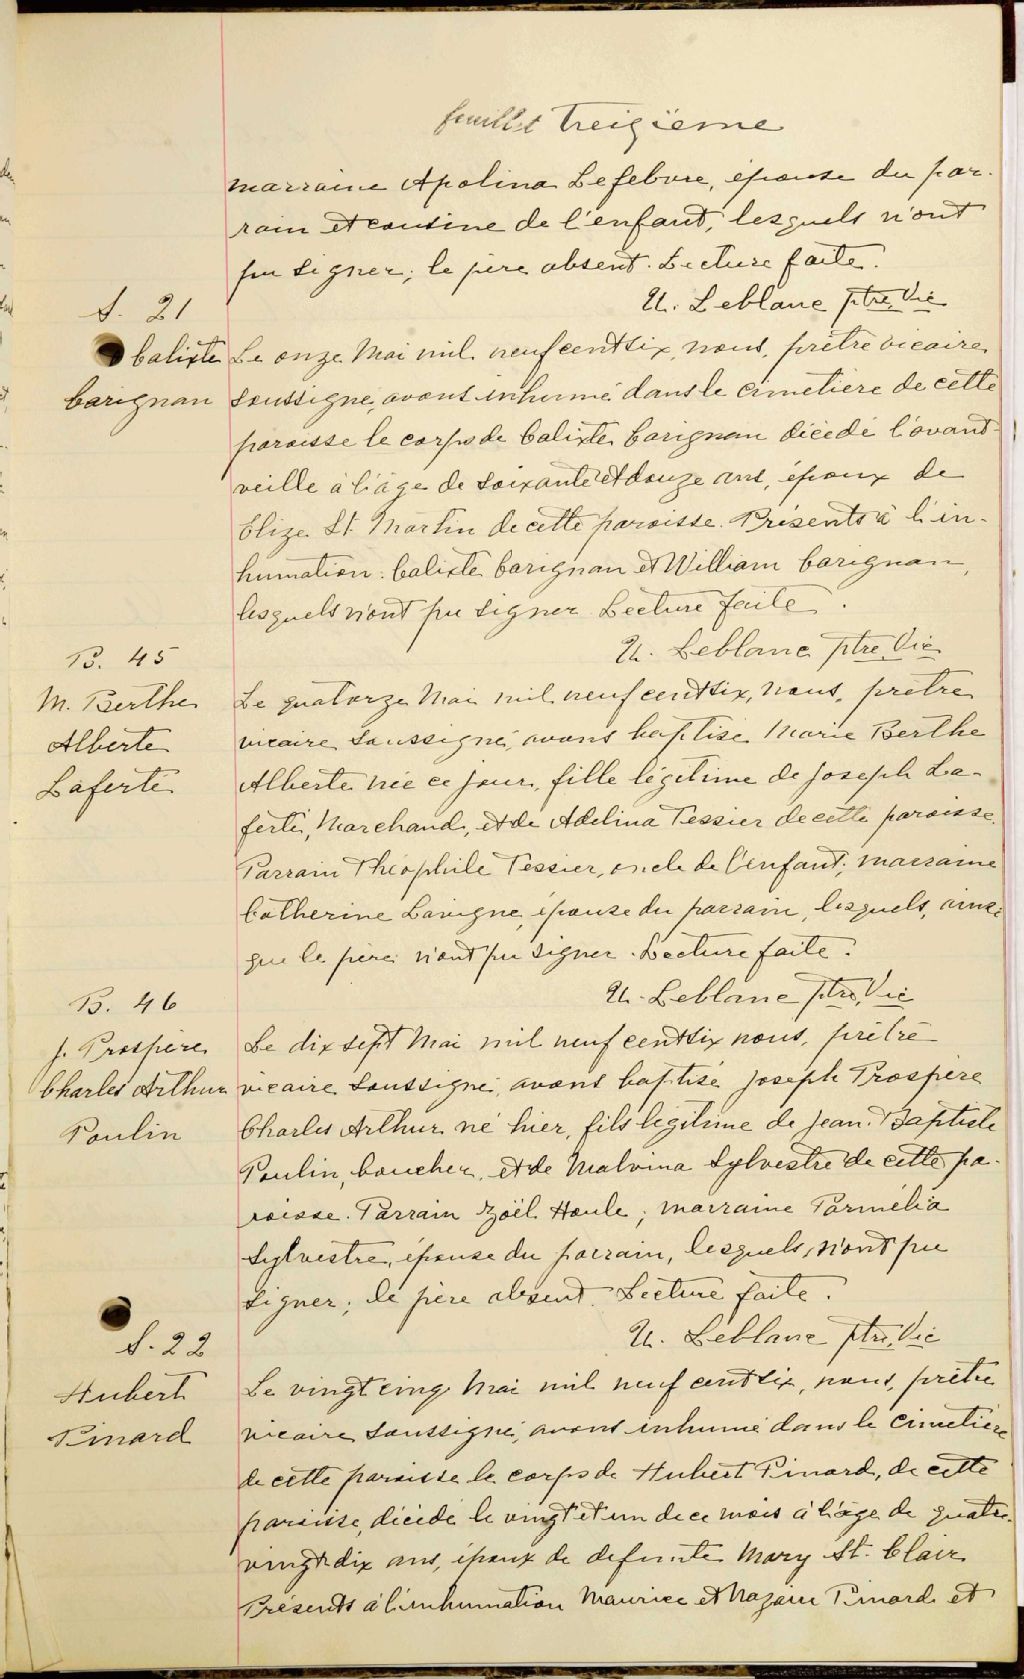 feuillet treizième
marraine Apolina Lefebvre, épouse du par-
rain et cousine de l'enfant, lesquels n'ont
pu signer; le père absent. Lecture faite.
U. Leblanc ptre. Vic
S. 21
Calixte
Carignan
Le onze Mai mil neuf cent six, nous, prêtre vicaire
soussigné, avons inhumé dans le cimetière de cette
paroisse le corps de Calixte Carignan décédé l'avant-
veille à l'âge de soixante et douze ans, époux de
Elize St. Martin de cette paroisse. Présents à l'in-
humation: Calixte Carignan et William Carignan,
lesquels n'ont pu signer Lecture faite.
U. Leblanc ptre. Vic
B. 45
M. Berthe
Alberte
Laferté
Le quatorze Mai mil neuf cent six, nous, prêtre
vicaire soussigné, avons baptisé Marie Berthe
Alberte née ce jour, fille légitime de Joseph La-
ferté, Marchand, et de Adelina Tessier de cette paroisse.
Parrain Théophile Tessier, oncle de l'enfant; marraine
Catherine Lavigne, épouse du parrain, lesquels, ainsi
que le père n'ont pu signer. Lecture faite.
U. Leblanc ptre, Vic
B. 46
J. Prospère
Charles Arthur
Poulin
Le dix sept Mai mil neuf cent six nous, prêtre
vicaire soussigné, avons baptisé Joseph Prospère
Charles Arthur né hier, fils légitime de Jean-Baptiste
Poulin, boucher, et de Malvina Sylvestre de cette pa-
roisse. Parrain Zoël Houle; marraine Parmélia
Sylvestre, épouse du parrain, lesquels, n'ont pu
signer; le père absent. Lecture faite.
U. Leblanc ptre, Vic
S. 22
Hubert
Pinard
Le vingt cinq Mai mil neuf cent six, nous, prêtre
vicaire soussigné, avons inhumé dans le cimetière
de cette paroisse le corps de Hubert Pinard, de cette
paroisse, décédé le vingt et un de ce mois à l'âge de quatre-
vingt dix ans, époux de defunte Mary St. Clair
Présents à l'inhumation Maurice et Nazaire Pinard et